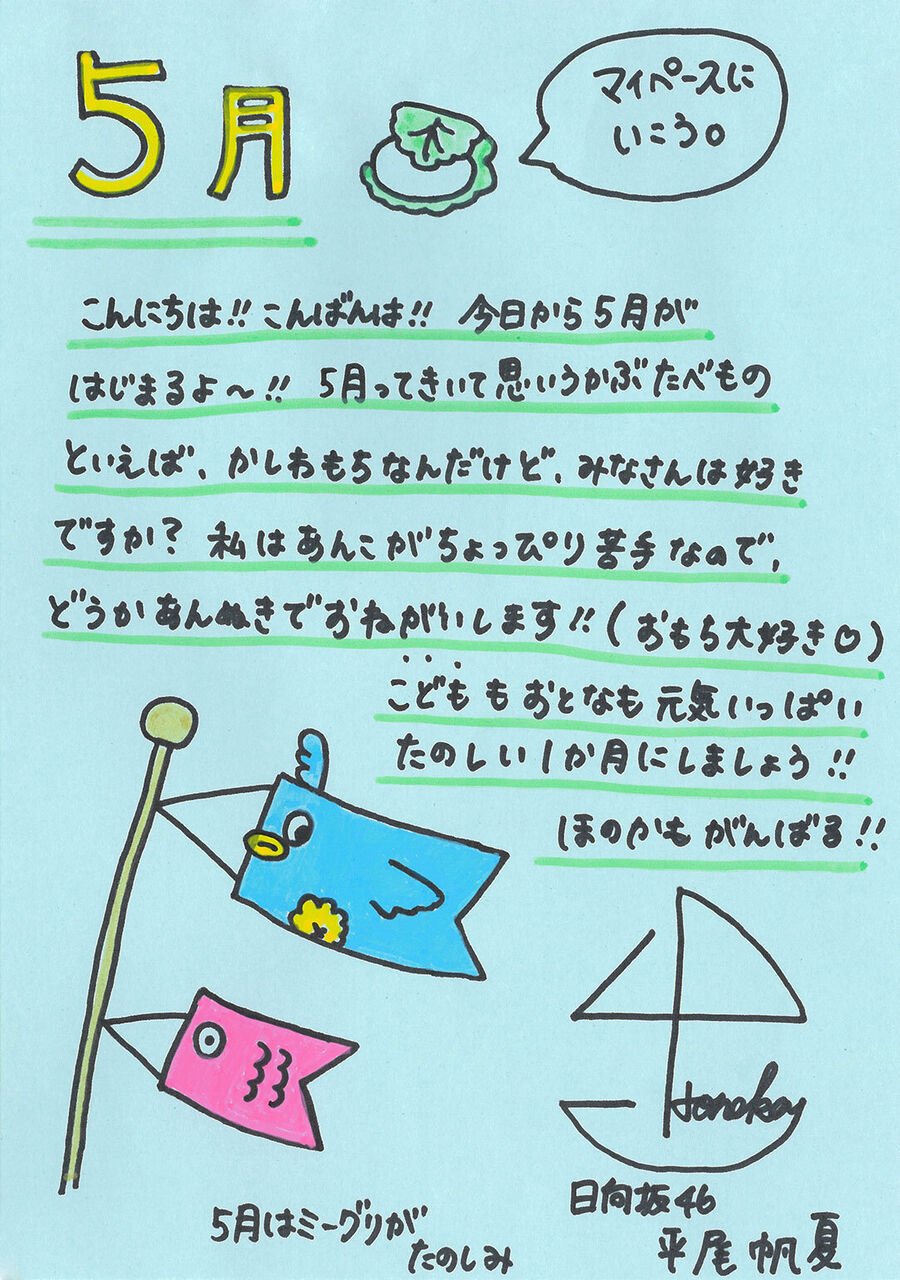 5月
マイペースに
いこう。
こんにちは!! こんばんは!! 今日から5月が
はじまるよ〜!! 5月ってきいて思いうかぶたべもの
といえば、かしわもちなんだけど、みなさんは好き
ですか? 私はあんこがちょっぴり苦手なので、
どうかあんぬきでおねがいします!! (おもち大好き♡)
こどももおとなも元気いっぱい
たのしい1か月にしましょう!!
ほのかもがんばる!!
Honoka
日向坂46
平尾帆夏
5月はミーグリが
たのしみ